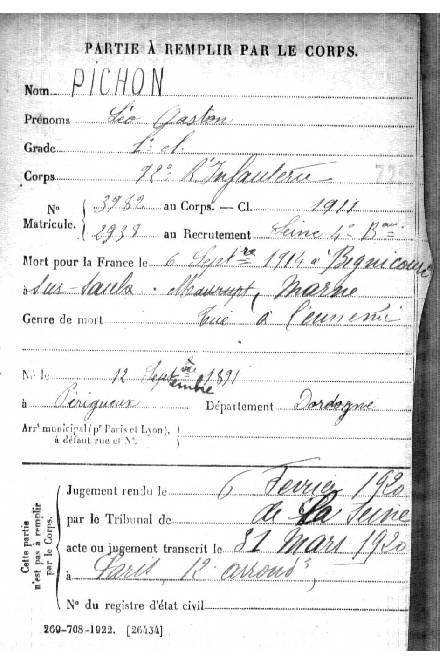 PARTIE À REMPLIR PAR LE CORPS.
Nom PICHON
Prénoms Léo Gaston
Grade 2e cl.
Corps 72e R. Infanterie 72
Nº 3982 au Corps. — Cl. 1911
Matricule. 2938 au Recrutement Seine 4e Bau
Mort pour la France le 6 Septbre 1914 à Bignicourt
à sur-Saulx. Maurupt, Marne
Genre de mort Tué à l'ennemi
Né le 12 Septembre 1891
à Périgueux Département Dordogne
Arrt municipal (pr Paris et Lyon),
à défaut rue et Nº.
Cette partie
n'est pas à remplir
par le Corps.
Jugement rendu le 6 Fevrier 1920
par le Tribunal de de La Seine
acte ou jugement transcrit le 31 Mars 1920
à Paris, 12e arrondt
Nº du registre d'état civil
269-708-1922. [26434]